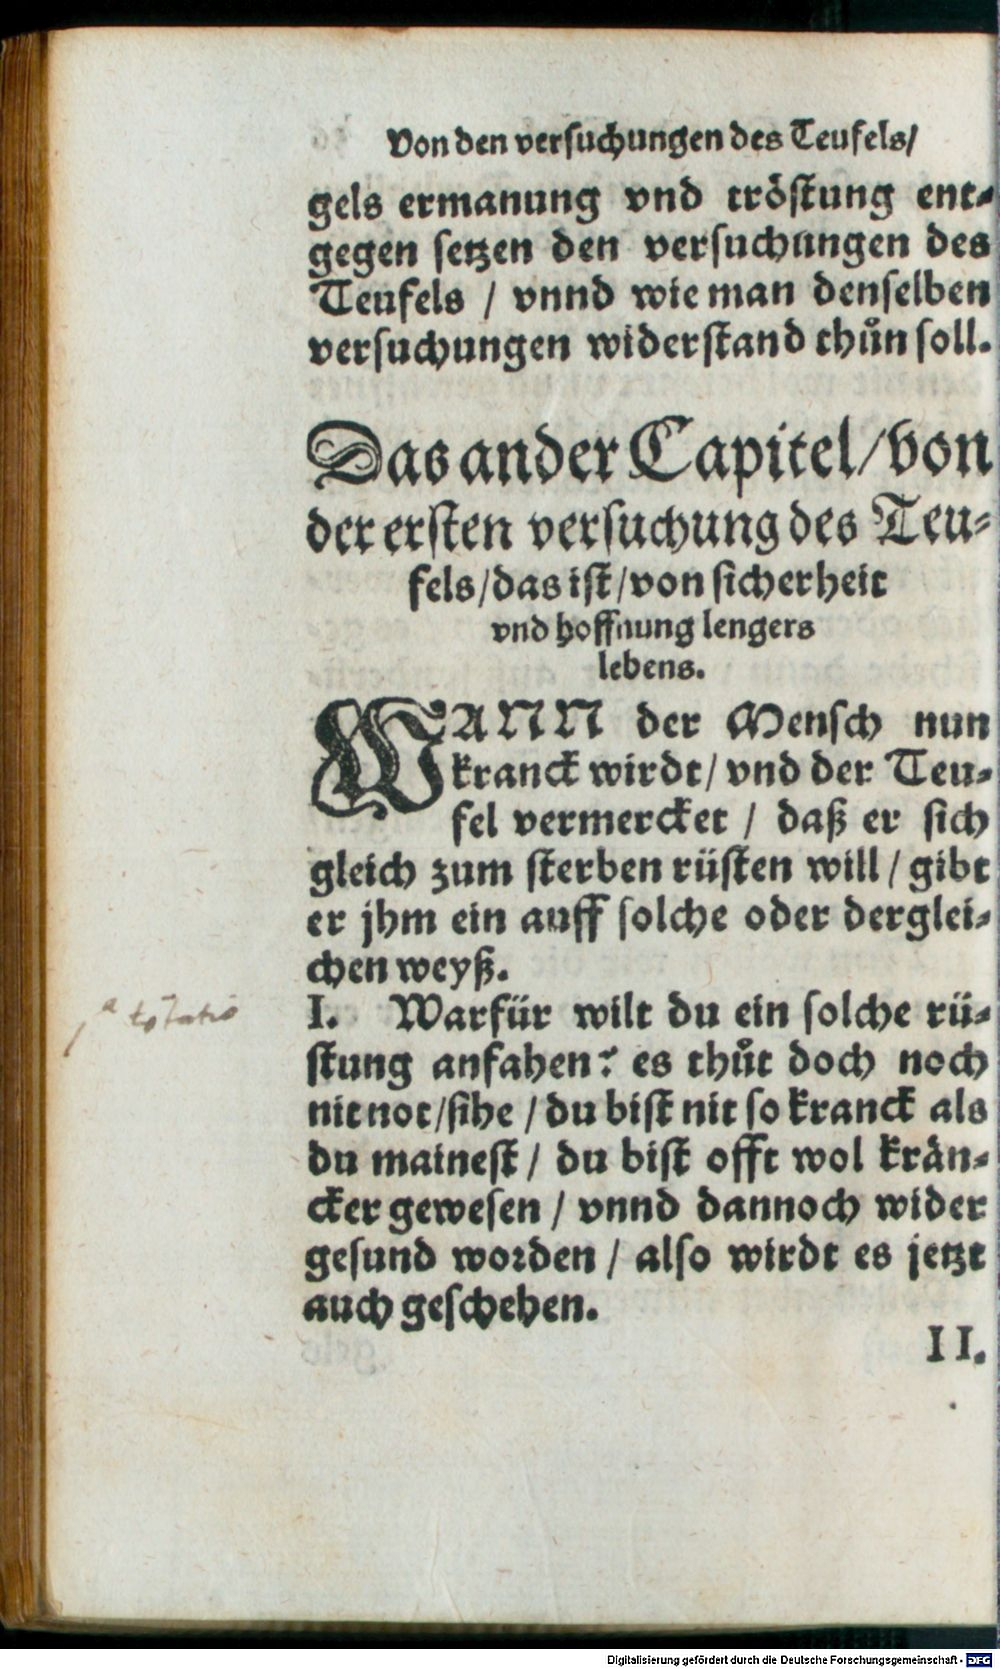 Von den versuchungen des Teufels/
gels ermanung vnd tröstung ent-
gegen setzen den versuchungen des
Teufels / vnnd wie man denselben
versuchungen widerstand thůn soll.
Das ander Capitel/von
der ersten versuchung des Teu-
fels/das ist/von sicherheit
vnd hoffnung lengers
lebens.
WANN der Mensch nun
kranck wirdt/ vnd der Teu-
fel vermercket / daß er sich
gleich zum sterben rüsten will / gibt
er jhm ein auff solche oder derglei-
chen weyß.
I. Warfür wilt du ein solche rü-
stung anfahen? es thůt doch noch
nit not/sihe / du bist nit so kranck als
du mainest / du bist offt wol krän-
cker gewesen / vnnd dannoch wider
gesund worden / also wirdt es jetzt
auch geschehen.
II.
Digitalisierung gefördert durch die Deutsche Forschungsgemeinschaft - DFG